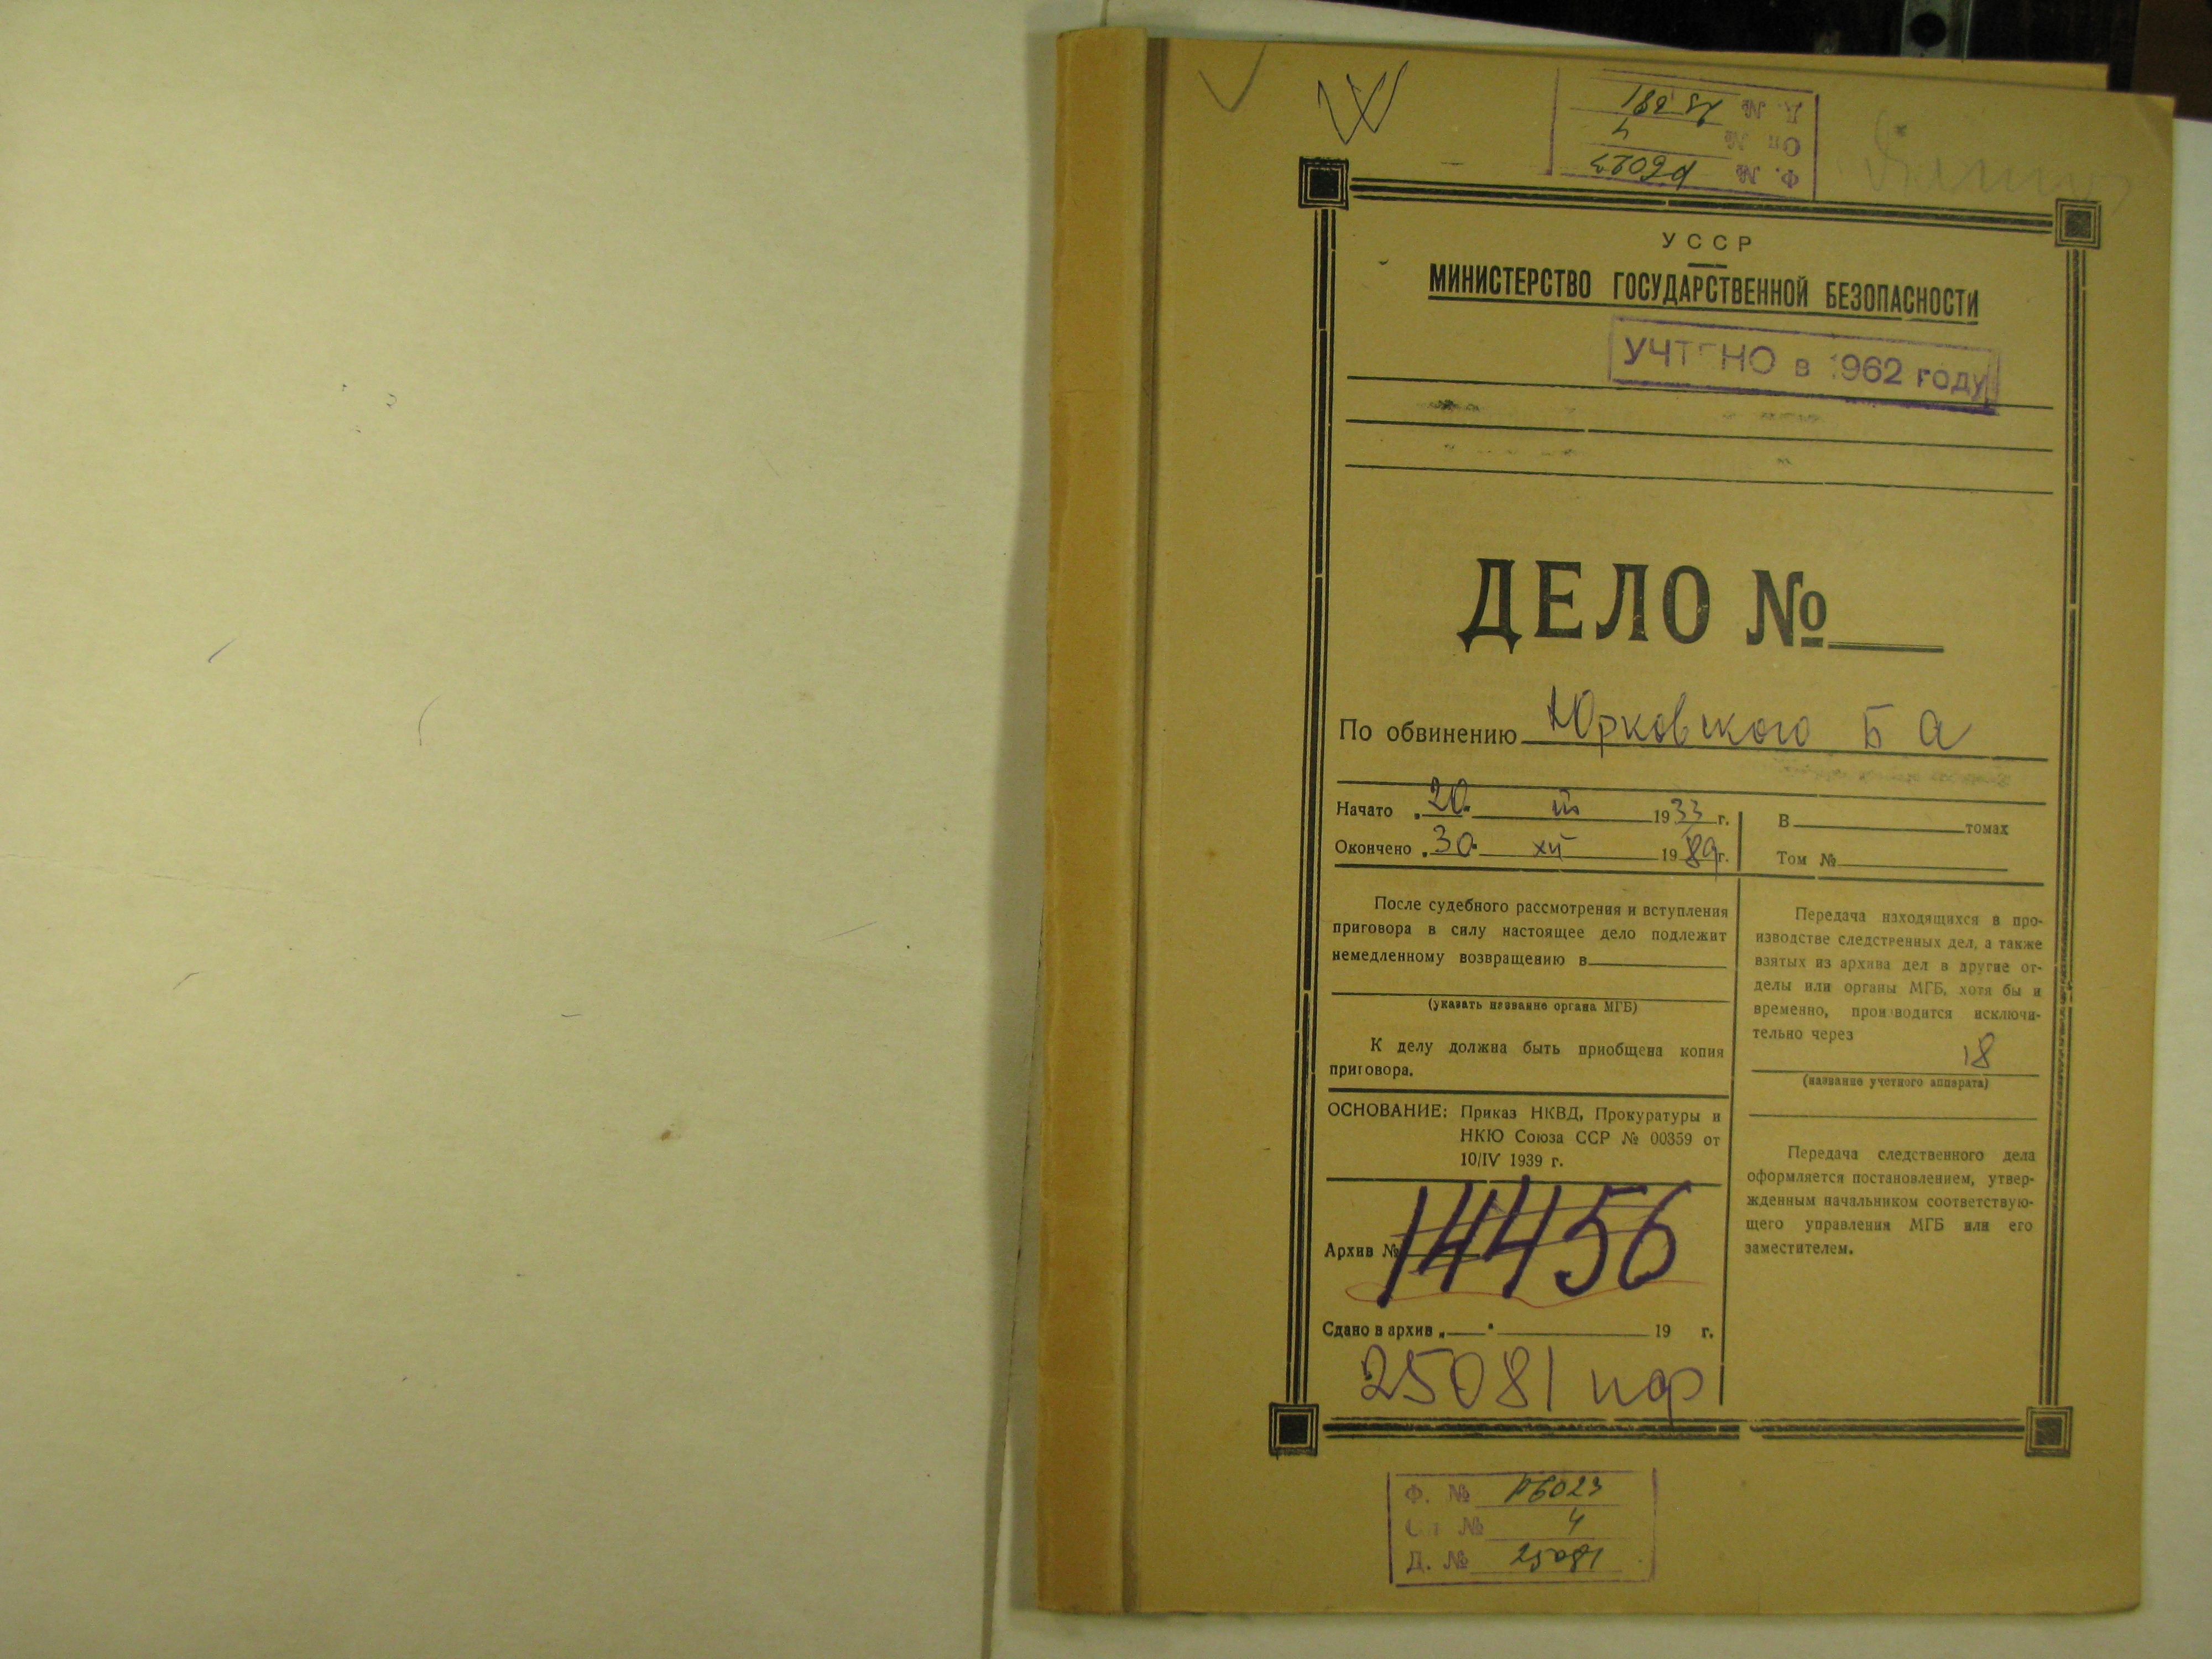 Ф. № Р6023
Оп № 4
Д. № 25081
УССР
МИНИСТЕРСТВО ГОСУДАРСТВЕННОЙ БЕЗОПАСНОСТИ
УЧТЕНО в 1962 году
ДЕЛО №
По обвинению Юрковского Б А
Начато „20“ III 1933 г.
Окончено „30“ XII 1989 г.
В томах
Том №
После судебного рассмотрения и вступления
приговора в силу настоящее дело подлежит
немедленному возвращению в
(указать название органа МГБ)
К делу должна быть приобщена копия
приговора.
ОСНОВАНИЕ: Приказ НКВД, Прокуратуры и
НКЮ Союза ССР № 00359 от
10/IV 1939 г.
Архив № 14456
Сдано в архив „ “ 19 г.
25081 пф
Передача находящихся в про-
изводстве следственных дел, а также
взятых из архива дел в другие от-
делы или органы МГБ, хотя бы и
временно, производится исключи-
тельно через
18
(название учетного аппарата)
Передача следственного дела
оформляется постановлением, утвер-
жденным начальником соответствую-
щего управления МГБ или его
заместителем.
Ф. № Р6023
Оп № 4
Д. № 25081